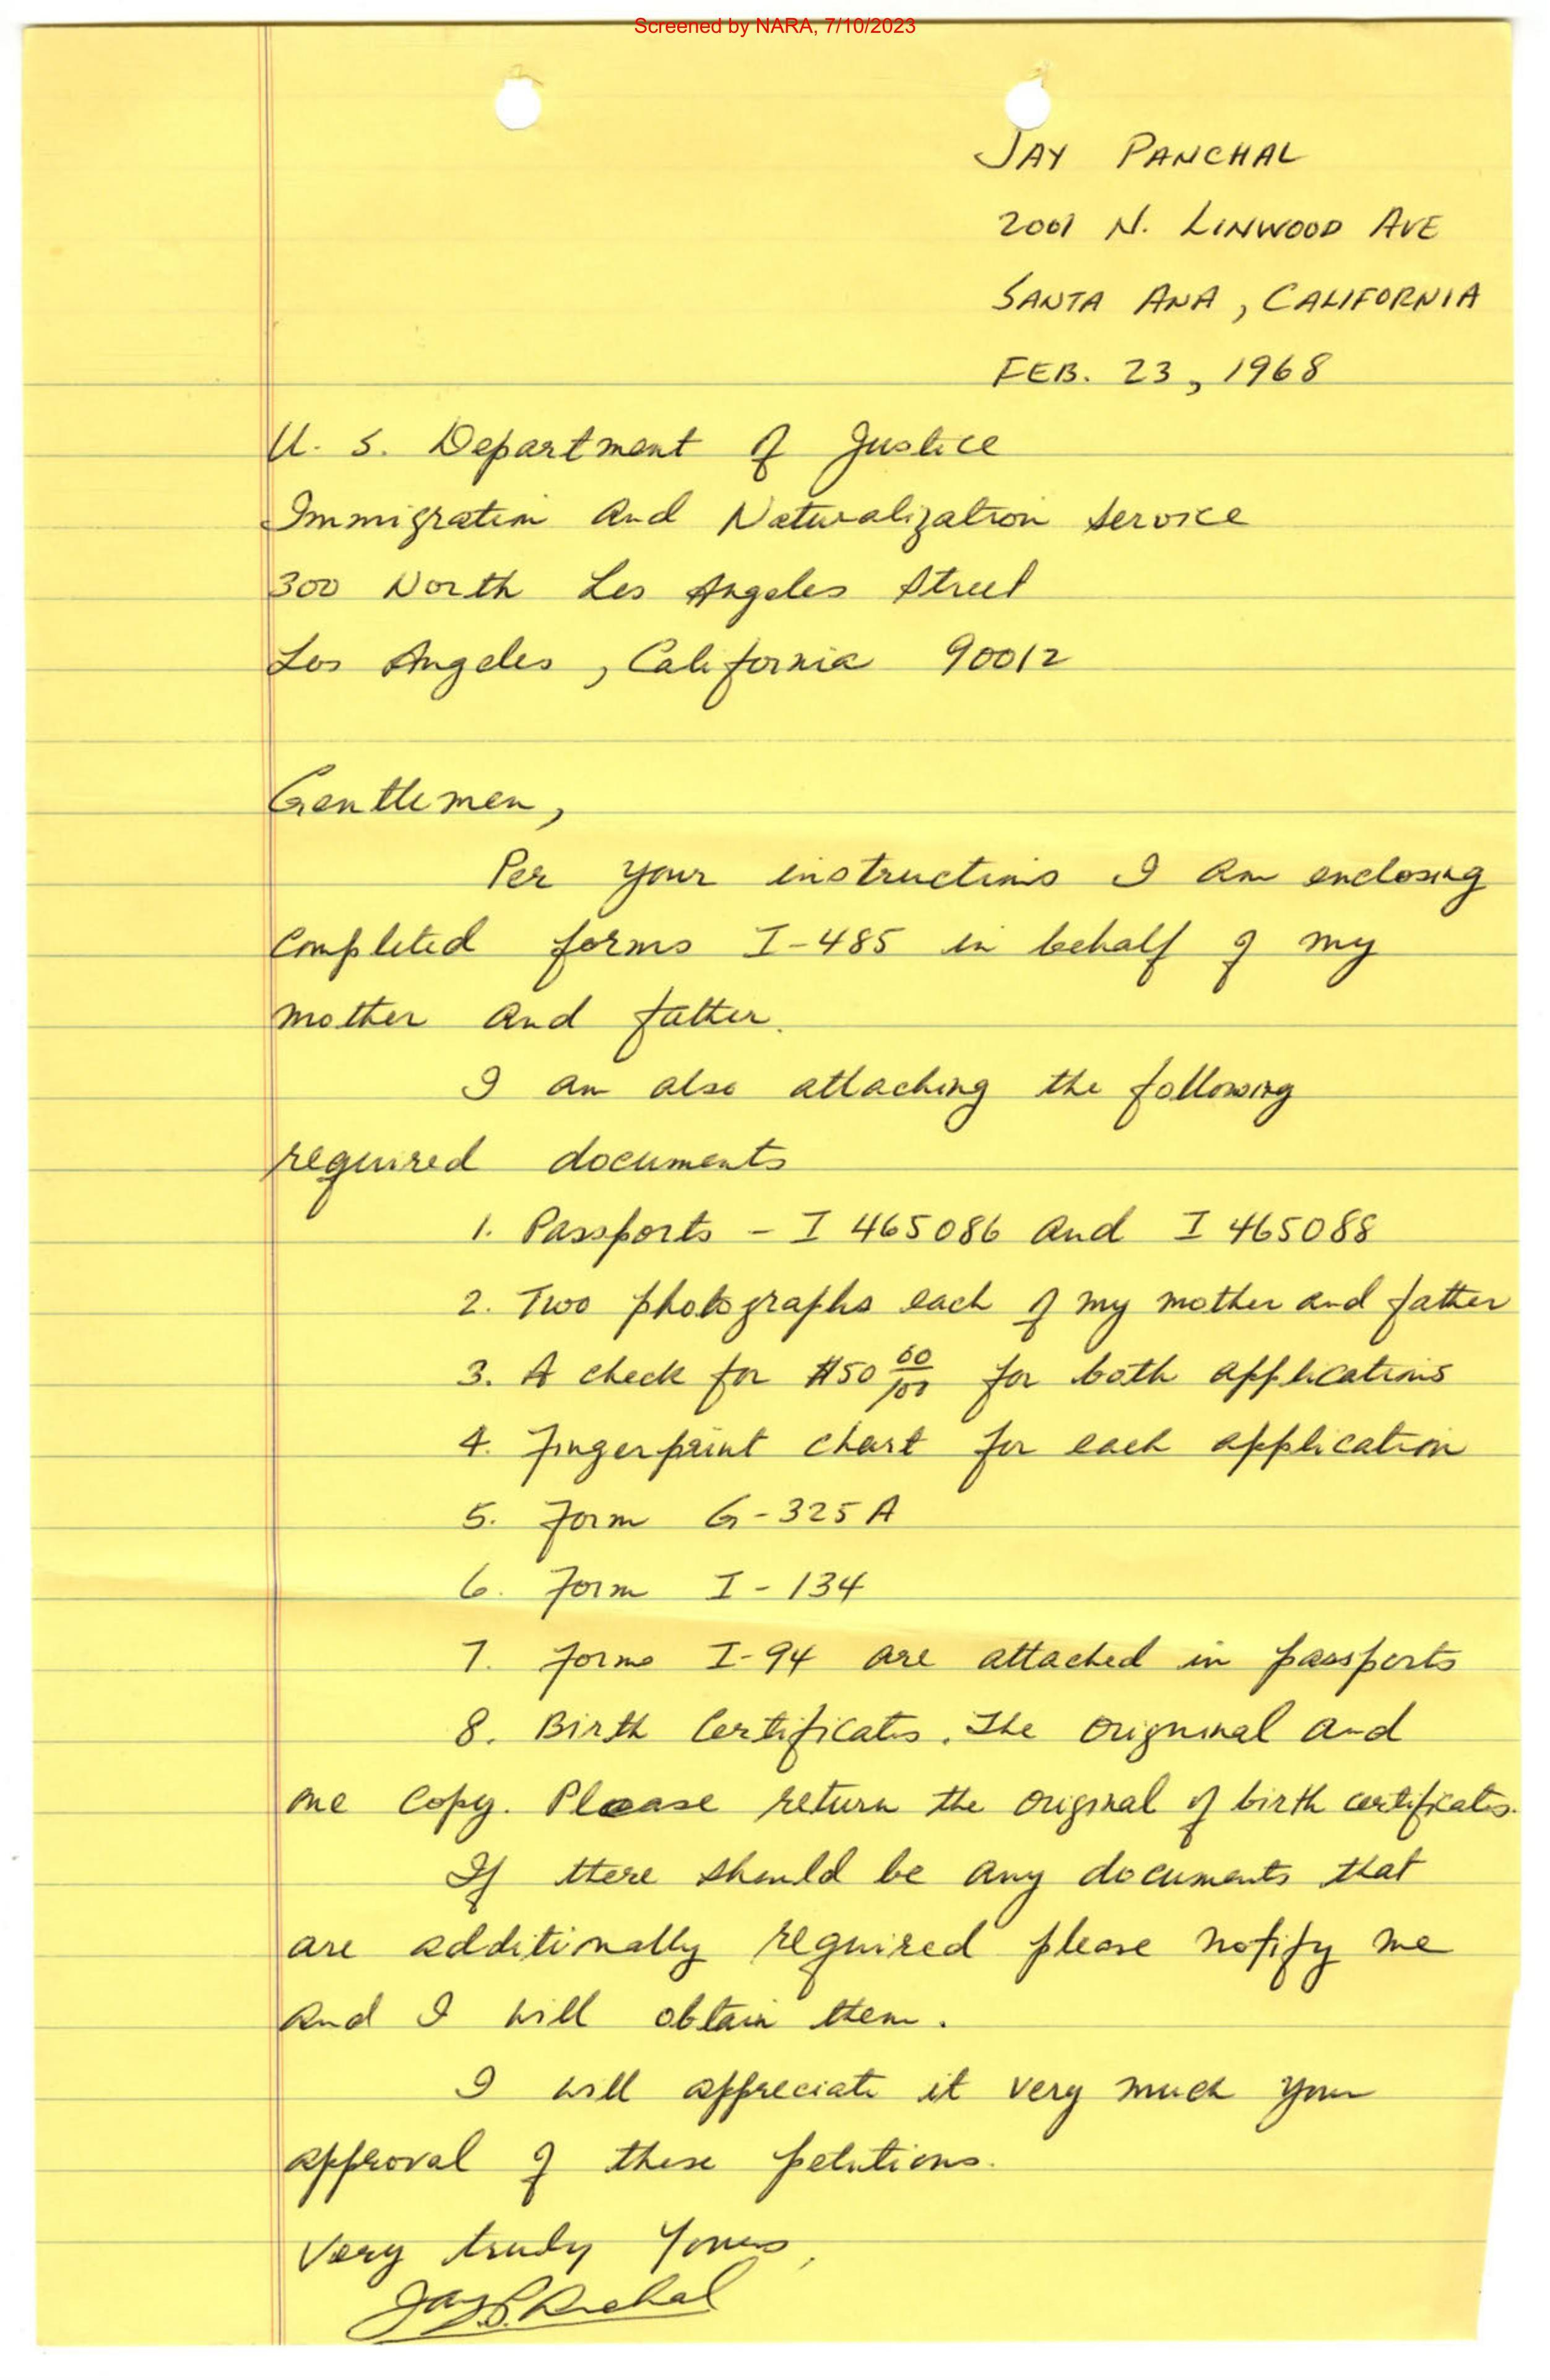 Screened by NARA, 7/10/2023
JAY PANCHAL
2001 N. LINWOOD AVE
SANTA ANA, CALIFORNIA
FEB. 23, 1968
U. S. Department of Justice
Immigration and Naturalization Service
300 North Los Angeles Street
Los Angeles, California 90012
Gentlemen,
Per your instructions I am enclosing
completed forms I-485 in behalf of my
mother and father.
I am also attaching the following
required documents
1. Passports - I 465086 and I 465088
2. Two photographs each of my mother and father
3. A check for $50 00/100 for both applications
4. Fingerprint chart for each application
5. Form G-325A
6. Form I-134
7. Forms I-94 are attached in passports
8. Birth Certificates. The origninal and
one copy. Please return the original of birth certificates.
If there should be any documents that
are additionally required please notify me
and I will obtain them.
I will appreciate it very much your
approval of these petitions.
Very truly yours,
Jay S. Panchal